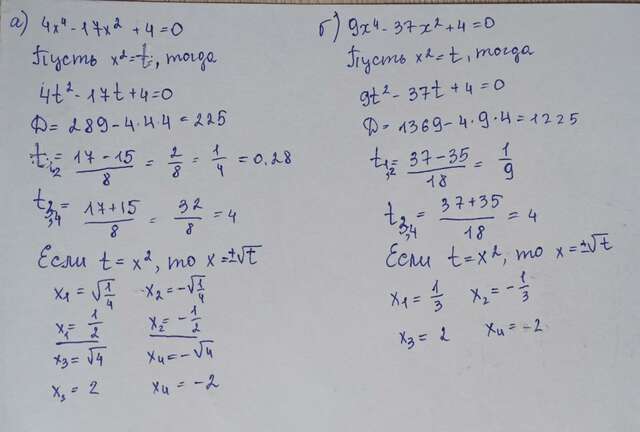 а) 4x⁴ - 17x² + 4 = 0
Пусть x² = t, тогда
4t² - 17t + 4 = 0
D = 289 - 4·4·4 = 225
t₁,₂ = (17 - 15)/8 = 2/8 = 1/4 = 0.28
t₂,₃,₄ = (17 + 15)/8 = 32/8 = 4
Если t = x², то x = ±√t
x₁ = √(1/4) x₂ = -√(1/4)
x₁ = 1/2 x₂ = -1/2
x₃ = √4 x₄ = -√4
x₃ = 2 x₄ = -2
б) 9x⁴ - 37x² + 4 = 0
Пусть x² = t, тогда
9t² - 37t + 4 = 0
D = 1369 - 4·9·4 = 1225
t₁,₂ = (37 - 35)/18 = 1/9
t₂,₃,₄ = (37 + 35)/18 = 4
Если t = x², то x = ±√t
x₁ = 1/3 x₂ = -1/3
x₃ = 2 x₄ = -2